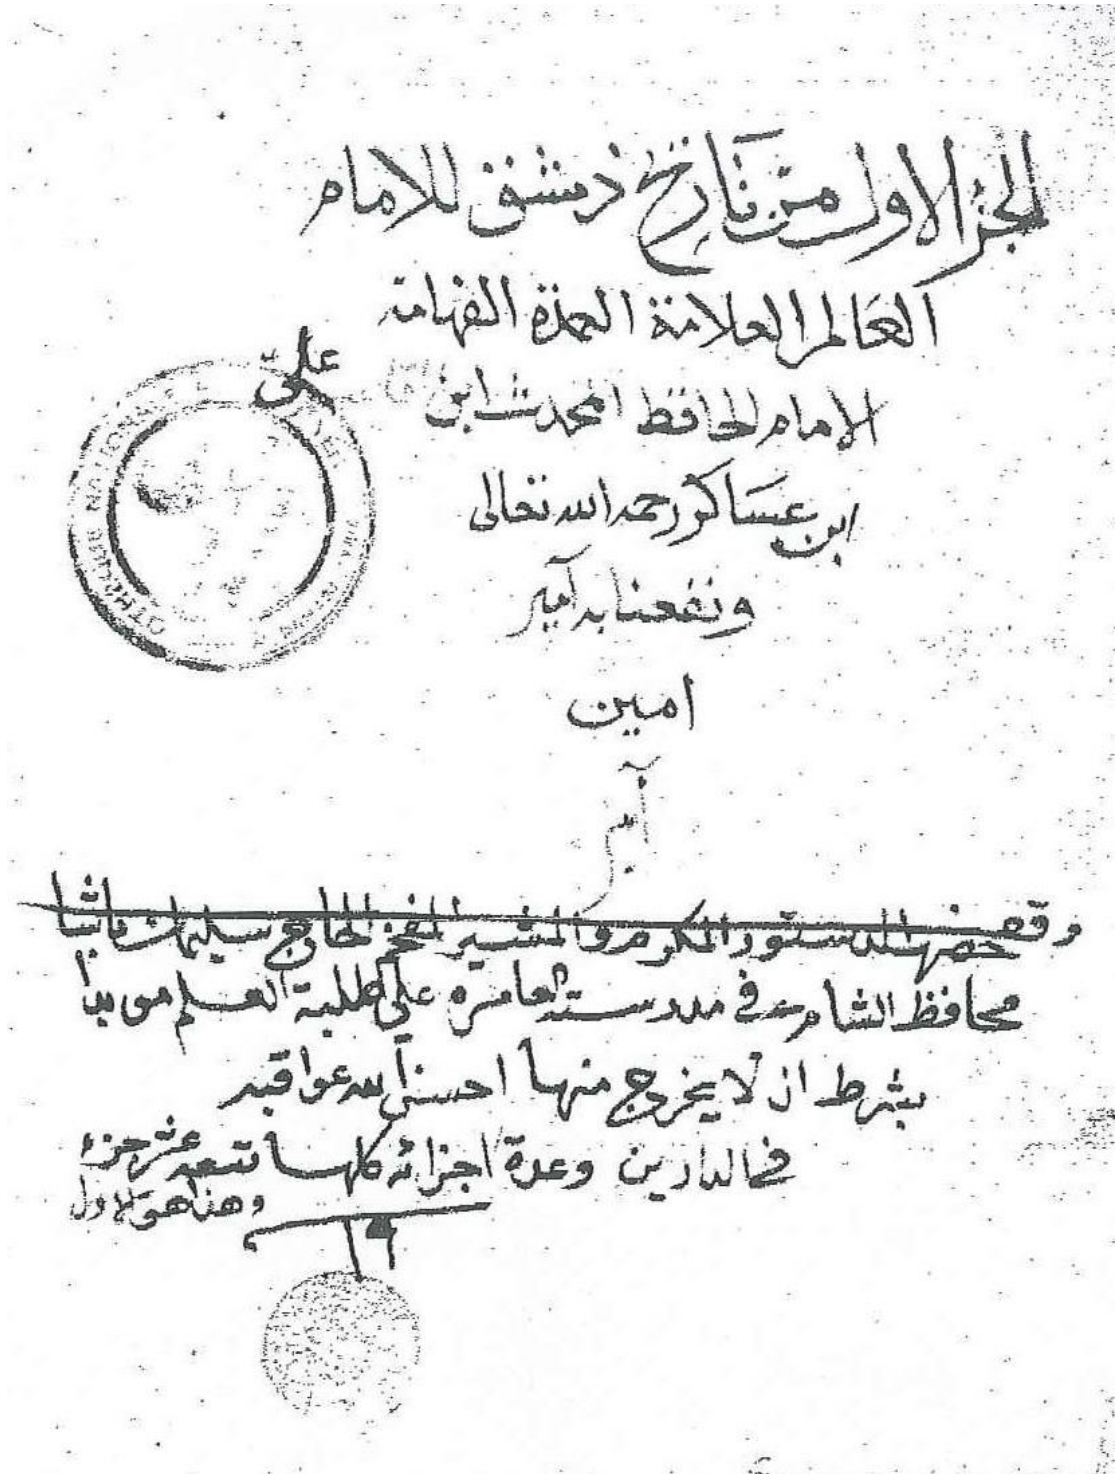 الجزء الاول من تاريخ دمشق للامام
العالم العلامة العمدة الفهامة
الامام الحافظ المحدث ابن
علي
ابن عساكر رحمه الله تعالى
ونفعنا به آمين
امين
آمين
وقف هذا الدستور المكرم والمشير المفخم الحاج سليمان باشا
محافظ الشام في مدرسته العامرة على طلبة العلم مويدا
بشرط ان لا يخرج منها احسن الله عواقبه
في الدارين وعدة اجزائه كلها تسعة عشر جزء
وهذا هو الاول
١٩
BIBLIOTHEQUE NATIONALE